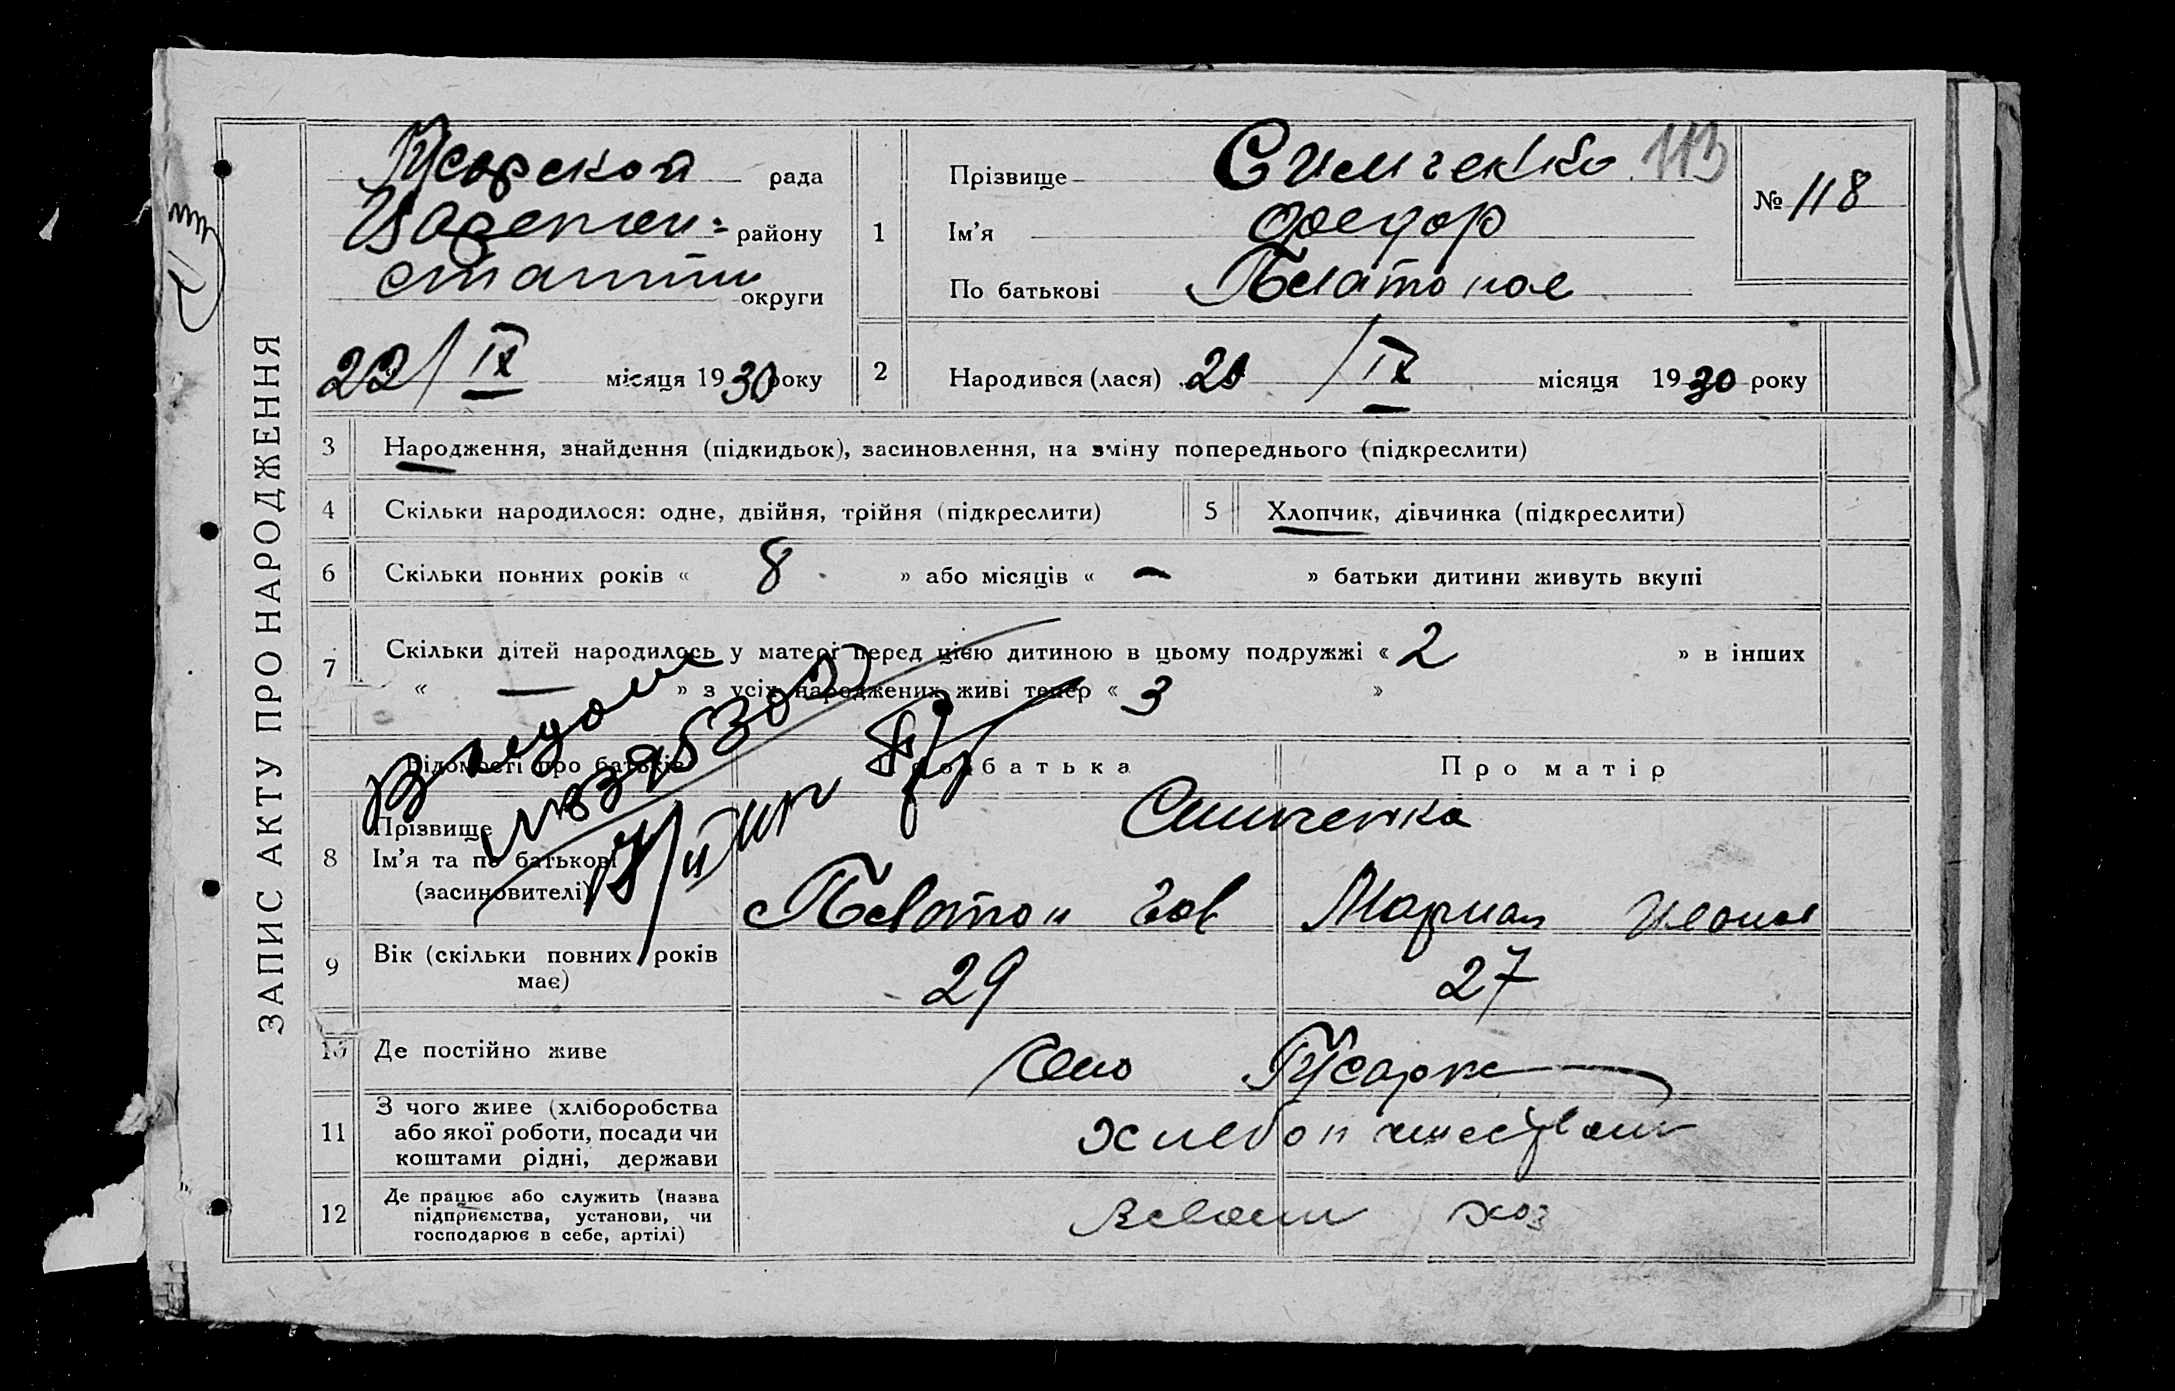 ЗАПИС АКТУ ПРО НАРОДЖЕННЯ
рада
району
округи
22/IX місяця 1930 року
1
Прізвище Симченко 113
Ім'я Федор
По батькові Платонов
№ 118
2 Народився (лася) 20 /IX місяця 1930 року
3 Народження, знайдення (підкидьок), засиновлення, на зміну попереднього (підкреслити)
4 Скільки народилося: одне, двійня, трійня (підкреслити) 5 Хлопчик, дівчинка (підкреслити)
6 Скільки повних років « 8 » або місяців « – » батьки дитини живуть вкупі
7 Скільки дітей народилось у матері перед цією дитиною в цьому подружжі « 2 » в інших
« — » з усіх народжених живі тепер « 3 »
Відомості про батьків Про батька Про матір
8 Прізвище Симченко
Ім'я та по батькові
(засиновителі) Платон Мария
9 Вік (скільки повних років має) 29 27
10 Де постійно живе Село Гусарка
11 З чого живе (хліборобства
або якої роботи, посади чи
коштами рідні, держави
12 Де працює або служить (назва
підприємства, установи, чи
господарює в себе, артілі) хоз